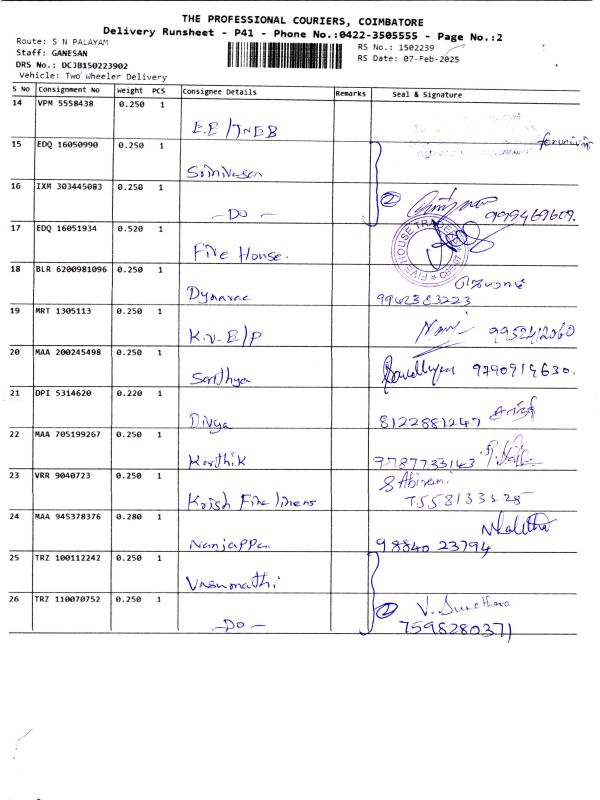 THE PROFESSIONAL COURIERS, COIMBATORE
Delivery Runsheet - P41 - Phone No.:0422-3505555 - Page No.:2
Route: S N PALAYAM
Staff: GANESAN
DRS No.: DCJB150223902
Vehicle: Two Wheeler Delivery
RS No.: 1502239
RS Date: 07-Feb-2025
S No Consignment No Weight PCS Consignee Details Remarks Seal & Signature
14 VPM 5558438 0.250 1 E.E / TNEB
15 EDQ 16050990 0.250 1 Srinivasan
16 IXM 303445083 0.250 1 - DO - 2
17 EDQ 16051934 0.520 1 Five House. FIVE HOUSE
18 BLR 6200981096 0.250 1 9942383223
19 MRT 1305113 0.250 1 K.V. E/P Nami 9952412060
20 MAA 200245498 0.250 1 Santhya 9790919630.
21 DPI 5314620 0.220 1 Divya 8122881247
22 MAA 705199267 0.250 1 Karthik 9787733143
23 VRR 9040723 0.250 1 Krish Fine linens S Abirami
24 MAA 945378376 0.280 1 Nanjappa. Lalitha 98840 23794
25 TRZ 100112242 0.250 1 Vasumathi
26 TRZ 110070752 0.250 1 - DO - 2 7598280371